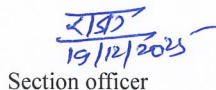 19/12/2025
Section officer